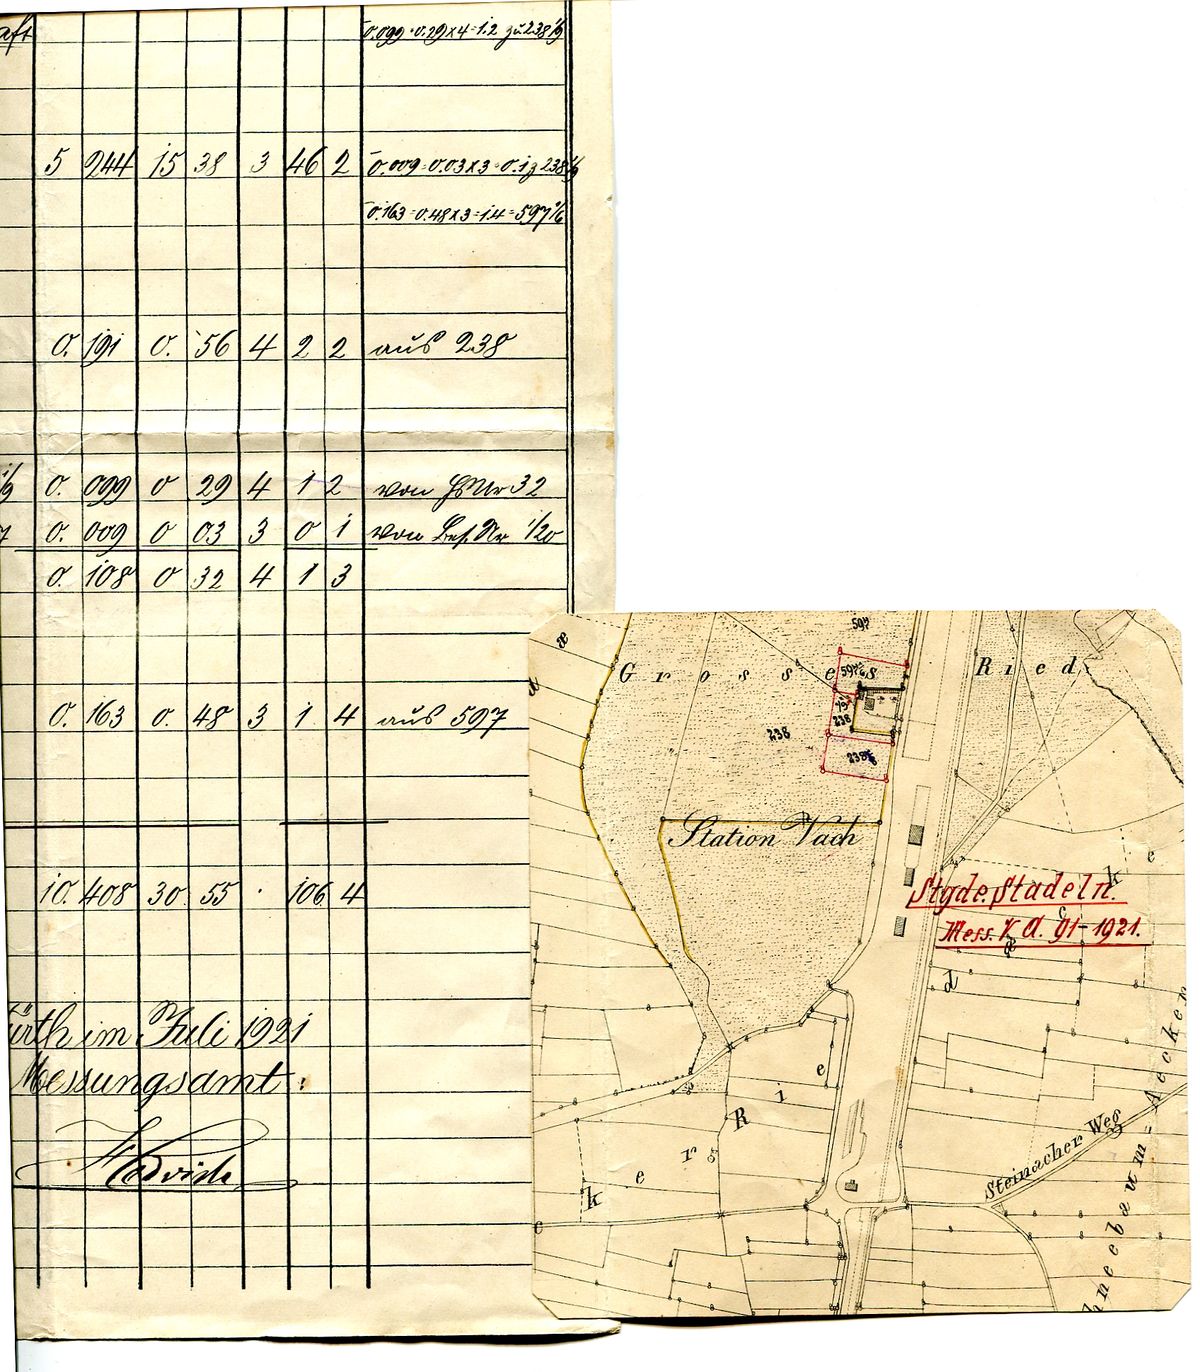 aft 0.099 = 0.29 x 4 = 1.2 zu 238 1/9
5 244 15 38 3 46 2 0.009 = 0.03 x 3 = 0.1 z 238 1/9
0.163 = 0.48 x 3 = 1.4 = 597 1/6
0. 191 0. 56 4 2 2 aus 238
1/9 0. 099 0 29 4 1 2 von HsNr 32
7 0. 009 0 03 3 0 1 von Bes. Nr 1/20
0. 108 0 32 4 1 3
0. 163 0. 48 3 1. 4 aus 597
10. 408 30. 55 . 106 4
ürth im Juli 1921
Messungsamt:
597
Grosses Ried
597 1/6
238
238
Station Vach
Stgde. Stadeln.
Mess. V. A. 91 - 1921.
Steinacher Weg
hneebaum-Aecker